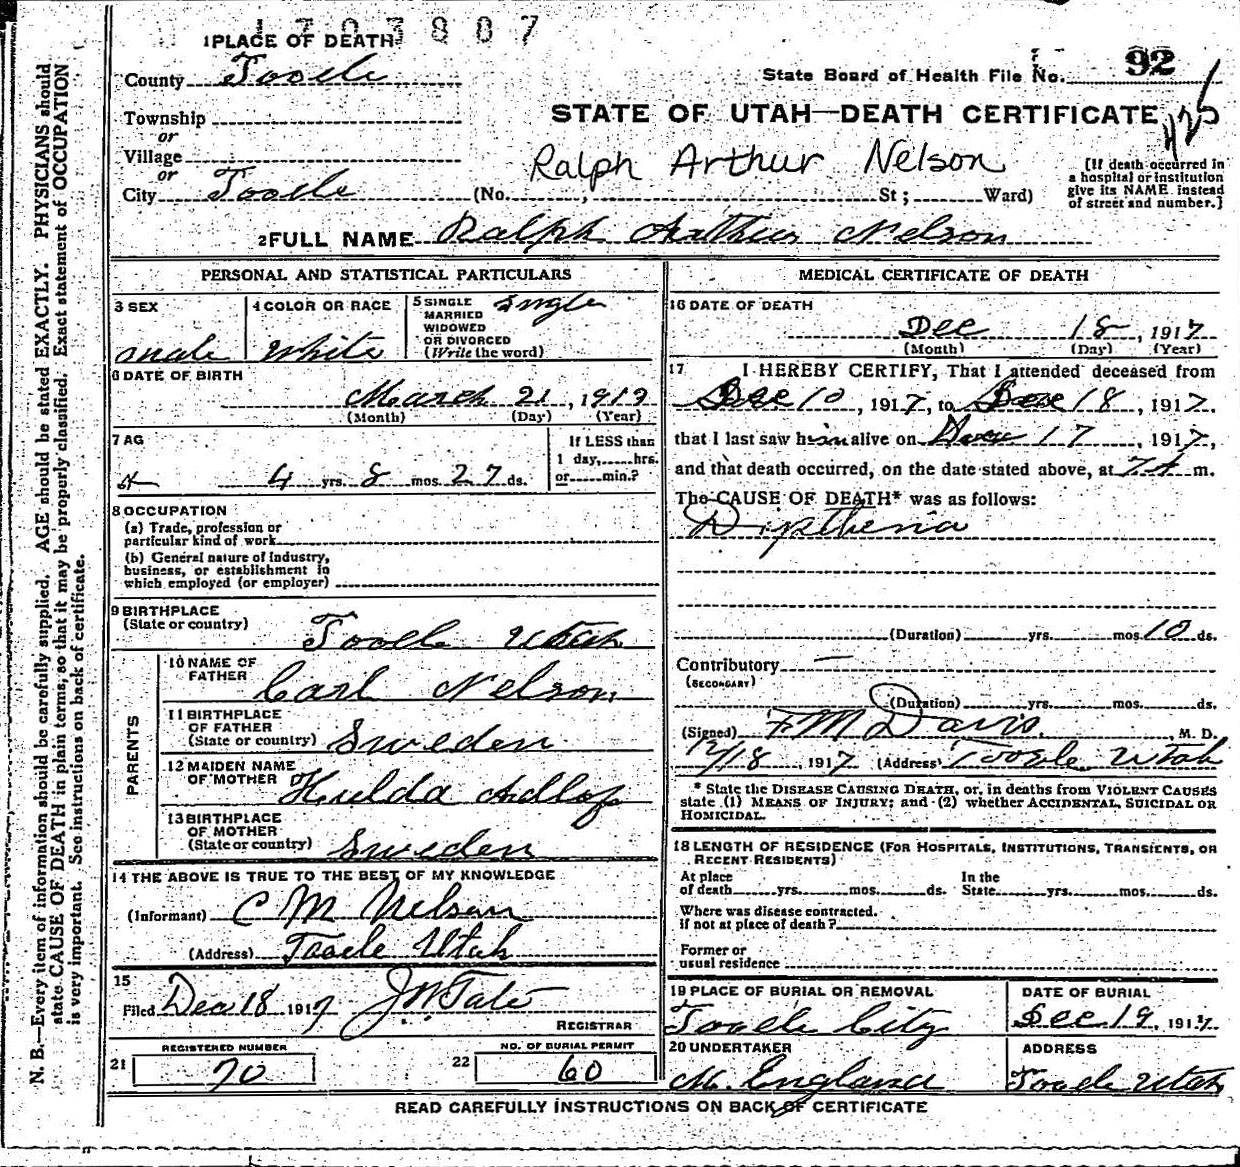 1703807
1 PLACE OF DEATH
County Tooele
State Board of Health File No. 92
Township
or
STATE OF UTAH—DEATH CERTIFICATE
Village
or
Ralph Arthur Nelson
[If death occurred in
a hospital or institution
give its NAME instead
of street and number.]
City Tooele (No. , St ; Ward)
2 FULL NAME Ralph Arthur Nelson
PERSONAL AND STATISTICAL PARTICULARS
3 SEX
male
4 COLOR OR RACE
White
5 SINGLE
MARRIED
WIDOWED
OR DIVORCED
(Write the word)
Single
6 DATE OF BIRTH
March 21, 1913
(Month) (Day) (Year)
7 AG
4 yrs. 8 mos. 27 ds.
If LESS than
1 day, hrs.
or min.?
8 OCCUPATION
(a) Trade, profession or
particular kind of work
(b) General nature of industry,
business, or establishment in
which employed (or employer)
9 BIRTHPLACE
(State or country)
Tooele Utah
PARENTS
10 NAME OF
FATHER
Carl Nelson
11 BIRTHPLACE
OF FATHER
(State or country)
Sweden
12 MAIDEN NAME
OF MOTHER
Hulda
13 BIRTHPLACE
OF MOTHER
(State or country)
Sweden
14 THE ABOVE IS TRUE TO THE BEST OF MY KNOWLEDGE
(Informant) C M Nelson
(Address) Tooele Utah
15
Filed Dec 18 1917 J W Tate
REGISTRAR
21
REGISTERED NUMBER
70
22
NO. OF BURIAL PERMIT
60
MEDICAL CERTIFICATE OF DEATH
16 DATE OF DEATH
Dec 18, 1917
(Month) (Day) (Year)
17 I HEREBY CERTIFY, That I attended deceased from
Dec 10, 1917, to Dec 18, 1917.
that I last saw him alive on Dec 17, 1917,
and that death occurred, on the date stated above, at 7 A m.
The CAUSE OF DEATH* was as follows:
Diptheria
(Duration) yrs. mos. 10 ds.
Contributory —
(SECONDARY)
(Duration) yrs. mos. ds.
(Signed) F M Davis, M. D.
12/18, 1917 (Address) Tooele Utah
* State the DISEASE CAUSING DEATH, or, in deaths from VIOLENT CAUSES
state (1) MEANS OF INJURY; and (2) whether ACCIDENTAL, SUICIDAL OR
HOMICIDAL.
18 LENGTH OF RESIDENCE (FOR HOSPITALS, INSTITUTIONS, TRANSIENTS, OR
RECENT RESIDENTS)
At place
of death yrs. mos. ds.
In the
State yrs. mos. ds.
Where was disease contracted.
if not at place of death?
Former or
usual residence
19 PLACE OF BURIAL OR REMOVAL
Tooele City
DATE OF BURIAL
Dec 19, 1917.
20 UNDERTAKER
M. England
ADDRESS
Tooele Utah
READ CAREFULLY INSTRUCTIONS ON BACK OF CERTIFICATE
N. B.—Every item of information should be carefully supplied. AGE should be stated EXACTLY. PHYSICIANS should
state CAUSE OF DEATH in plain terms, so that it may be properly classified. Exact statement of OCCUPATION
is very important. See instructions on back of certificate.